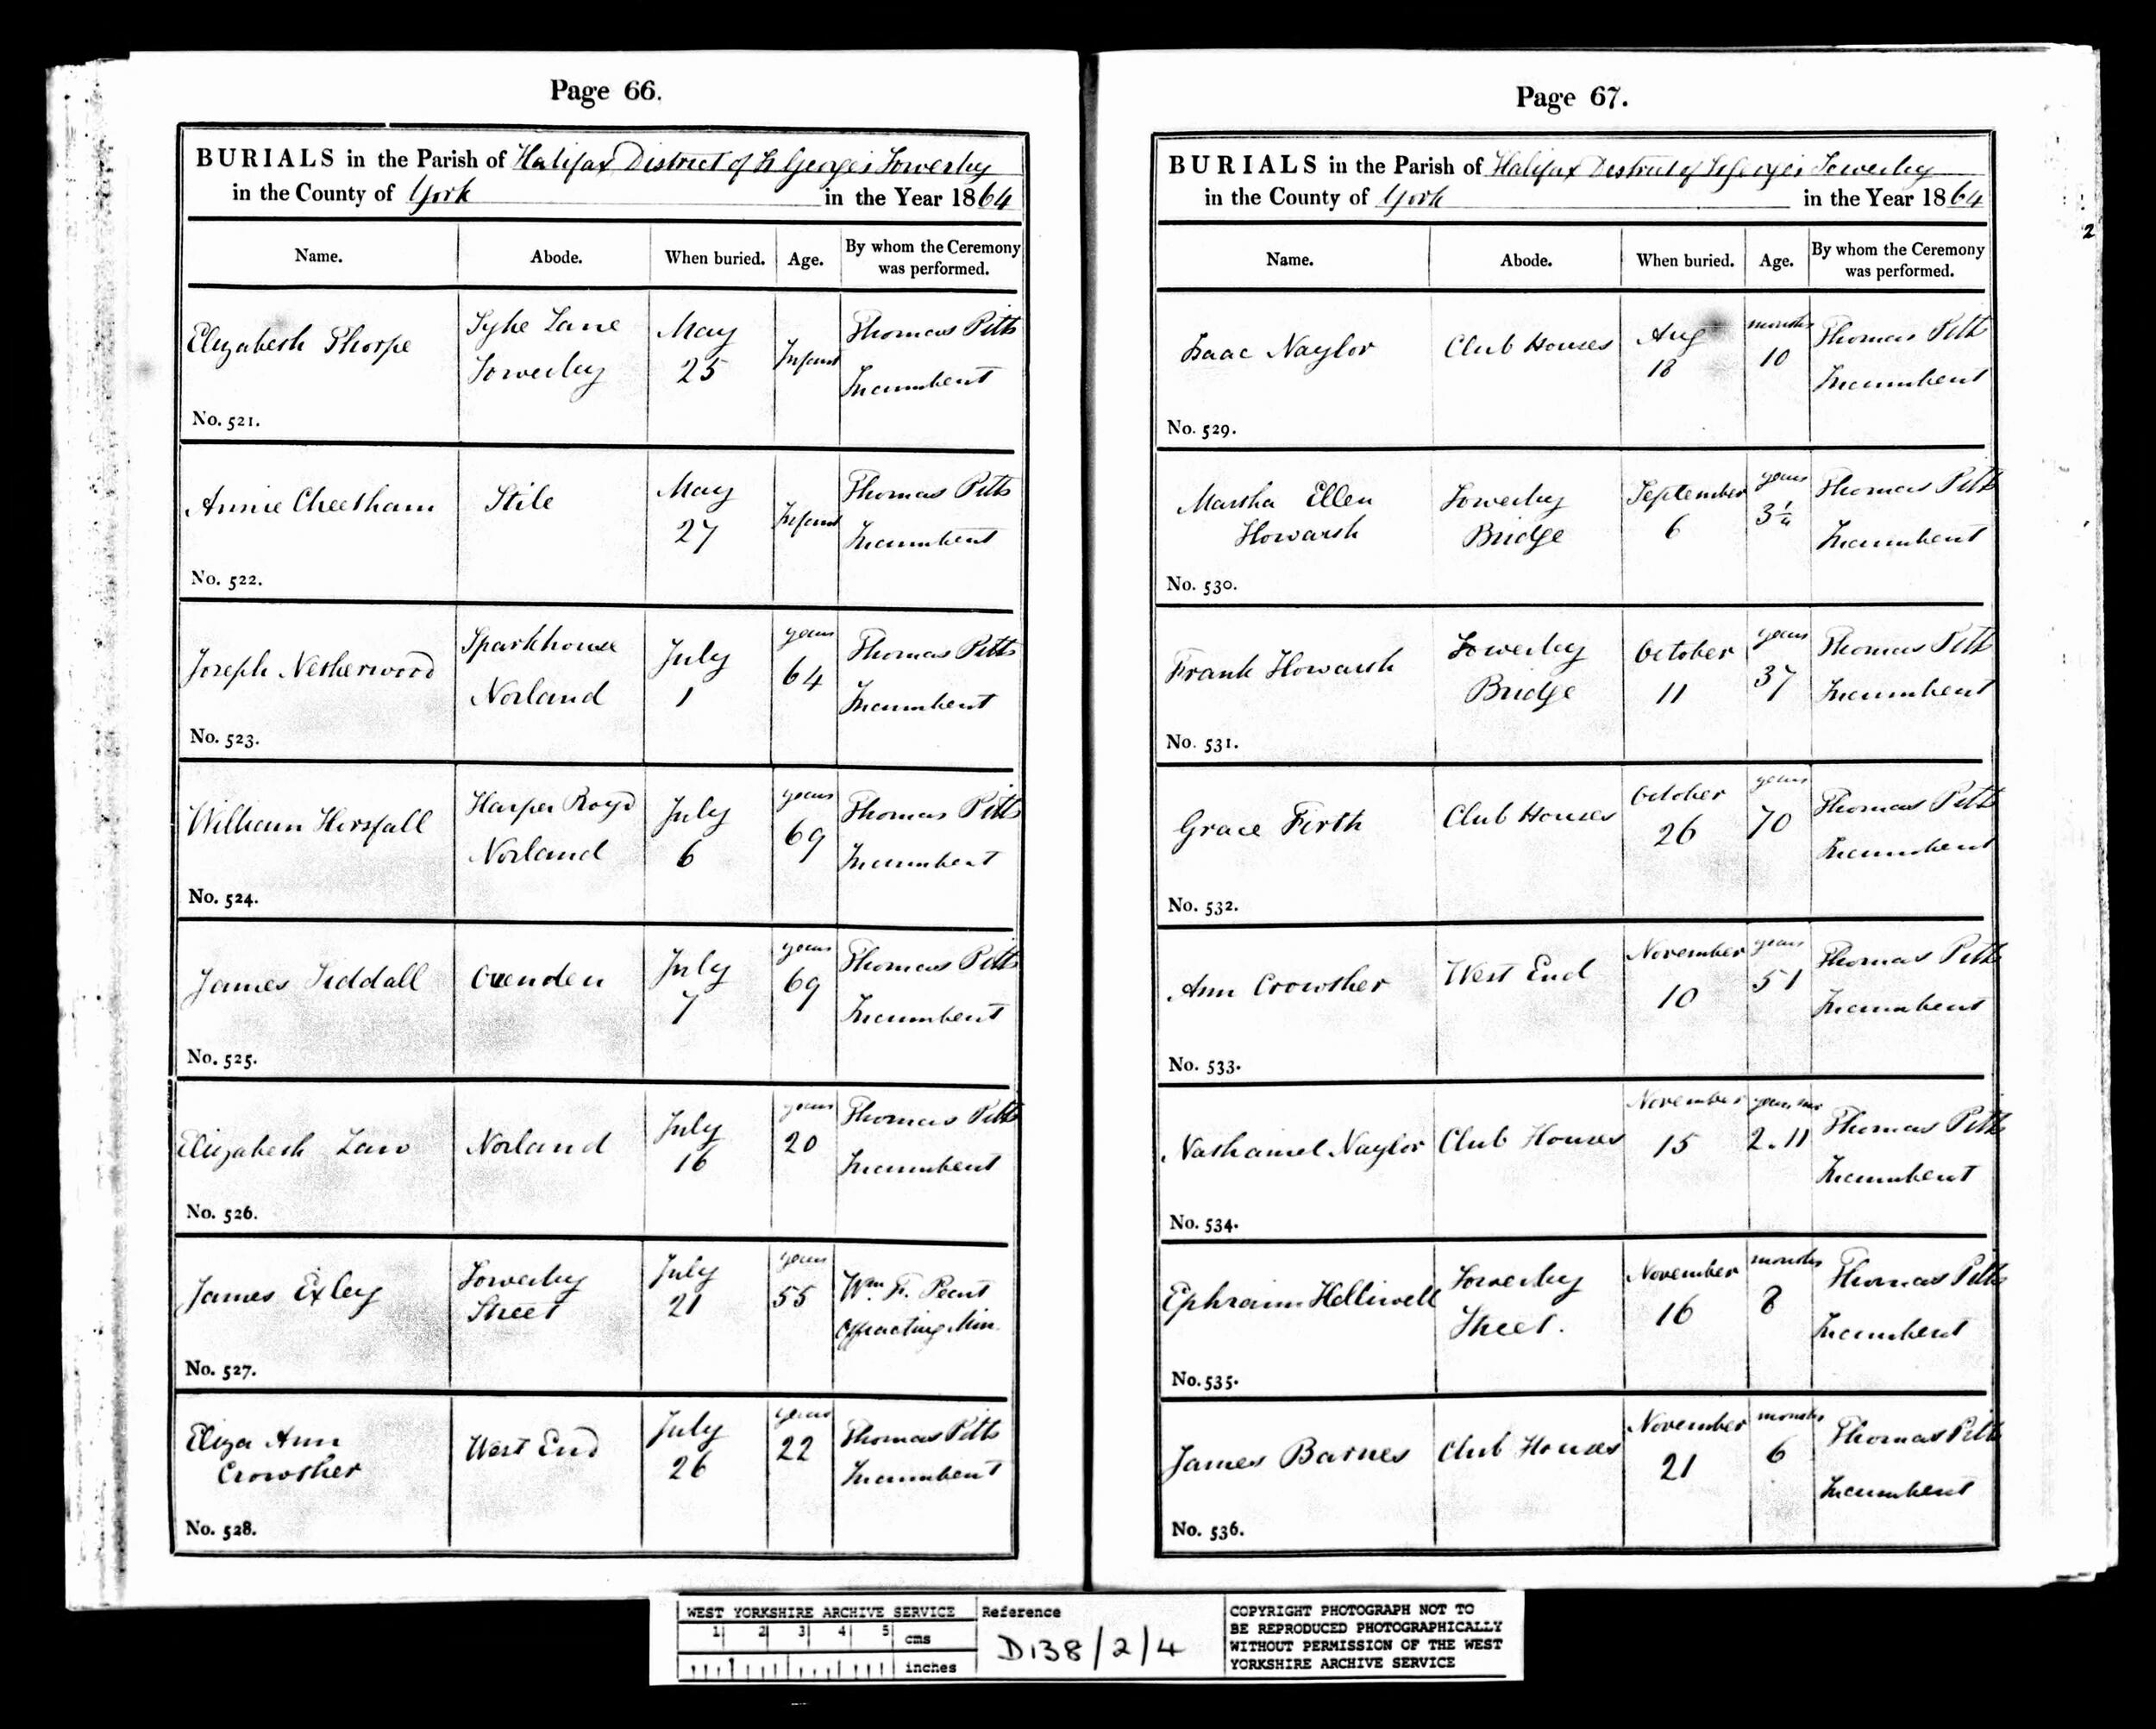 Page 66.
BURIALS in the Parish of Halifax District of St George's Sowerby
in the County of York in the Year 1864
Name. Abode. When buried. Age. By whom the Ceremony was performed.
Elizabeth Thorpe
Syke Lane
Sowerby
May
25
Infant
Thomas Pitts
Incumbent
No. 521.
Annie Cheetham
Stile
May
27
Infant
Thomas Pitts
Incumbent
No. 522.
Joseph Netherwood
Sparkhouse
Norland
July
1
years
64
Thomas Pitts
Incumbent
No. 523.
William Horsfall
Harper Royd
Norland
July
6
years
69
Thomas Pitts
Incumbent
No. 524.
James Tiddall
Ovenden
July
7
years
69
Thomas Pitts
Incumbent
No. 525.
Elizabeth Law
Norland
July
16
years
20
Thomas Pitts
Incumbent
No. 526.
James Exley
Sowerby
Street
July
21
years
55
Wm. F.
Officiating Min.
No. 527.
Eliza Ann
Crowther
West End
July
26
years
22
Thomas Pitts
Incumbent
No. 528.
Page 67.
BURIALS in the Parish of Halifax District of St George's Sowerby
in the County of York in the Year 1864
Name. Abode. When buried. Age. By whom the Ceremony was performed.
Isaac Naylor
Club Houses
Aug
18
months
10
Thomas Pitts
Incumbent
No. 529.
Martha Ellen
Howarth
Sowerby
Bridge
September
6
years
3¼
Thomas Pitts
Incumbent
No. 530.
Frank Howarth
Sowerby
Bridge
October
11
years
37
Thomas Pitts
Incumbent
No. 531.
Grace Firth
Club Houses
October
26
years
70
Thomas Pitts
Incumbent
No. 532.
Ann Crowther
West End
November
10
years
51
Thomas Pitts
Incumbent
No. 533.
Nathaniel Naylor
Club Houses
November
15
years ms
2.11
Thomas Pitts
Incumbent
No. 534.
Ephraim Helliwell
Sowerby
Street.
November
16
months
8
Thomas Pitts
Incumbent
No. 535.
James Barnes
Club Houses
November
21
months
6
Thomas Pitts
Incumbent
No. 536.
2
WEST YORKSHIRE ARCHIVE SERVICE
1 2 3 4 5 cms
inches
Reference
D138/2/4
COPYRIGHT PHOTOGRAPH NOT TO
BE REPRODUCED PHOTOGRAPHICALLY
WITHOUT PERMISSION OF THE WEST
YORKSHIRE ARCHIVE SERVICE